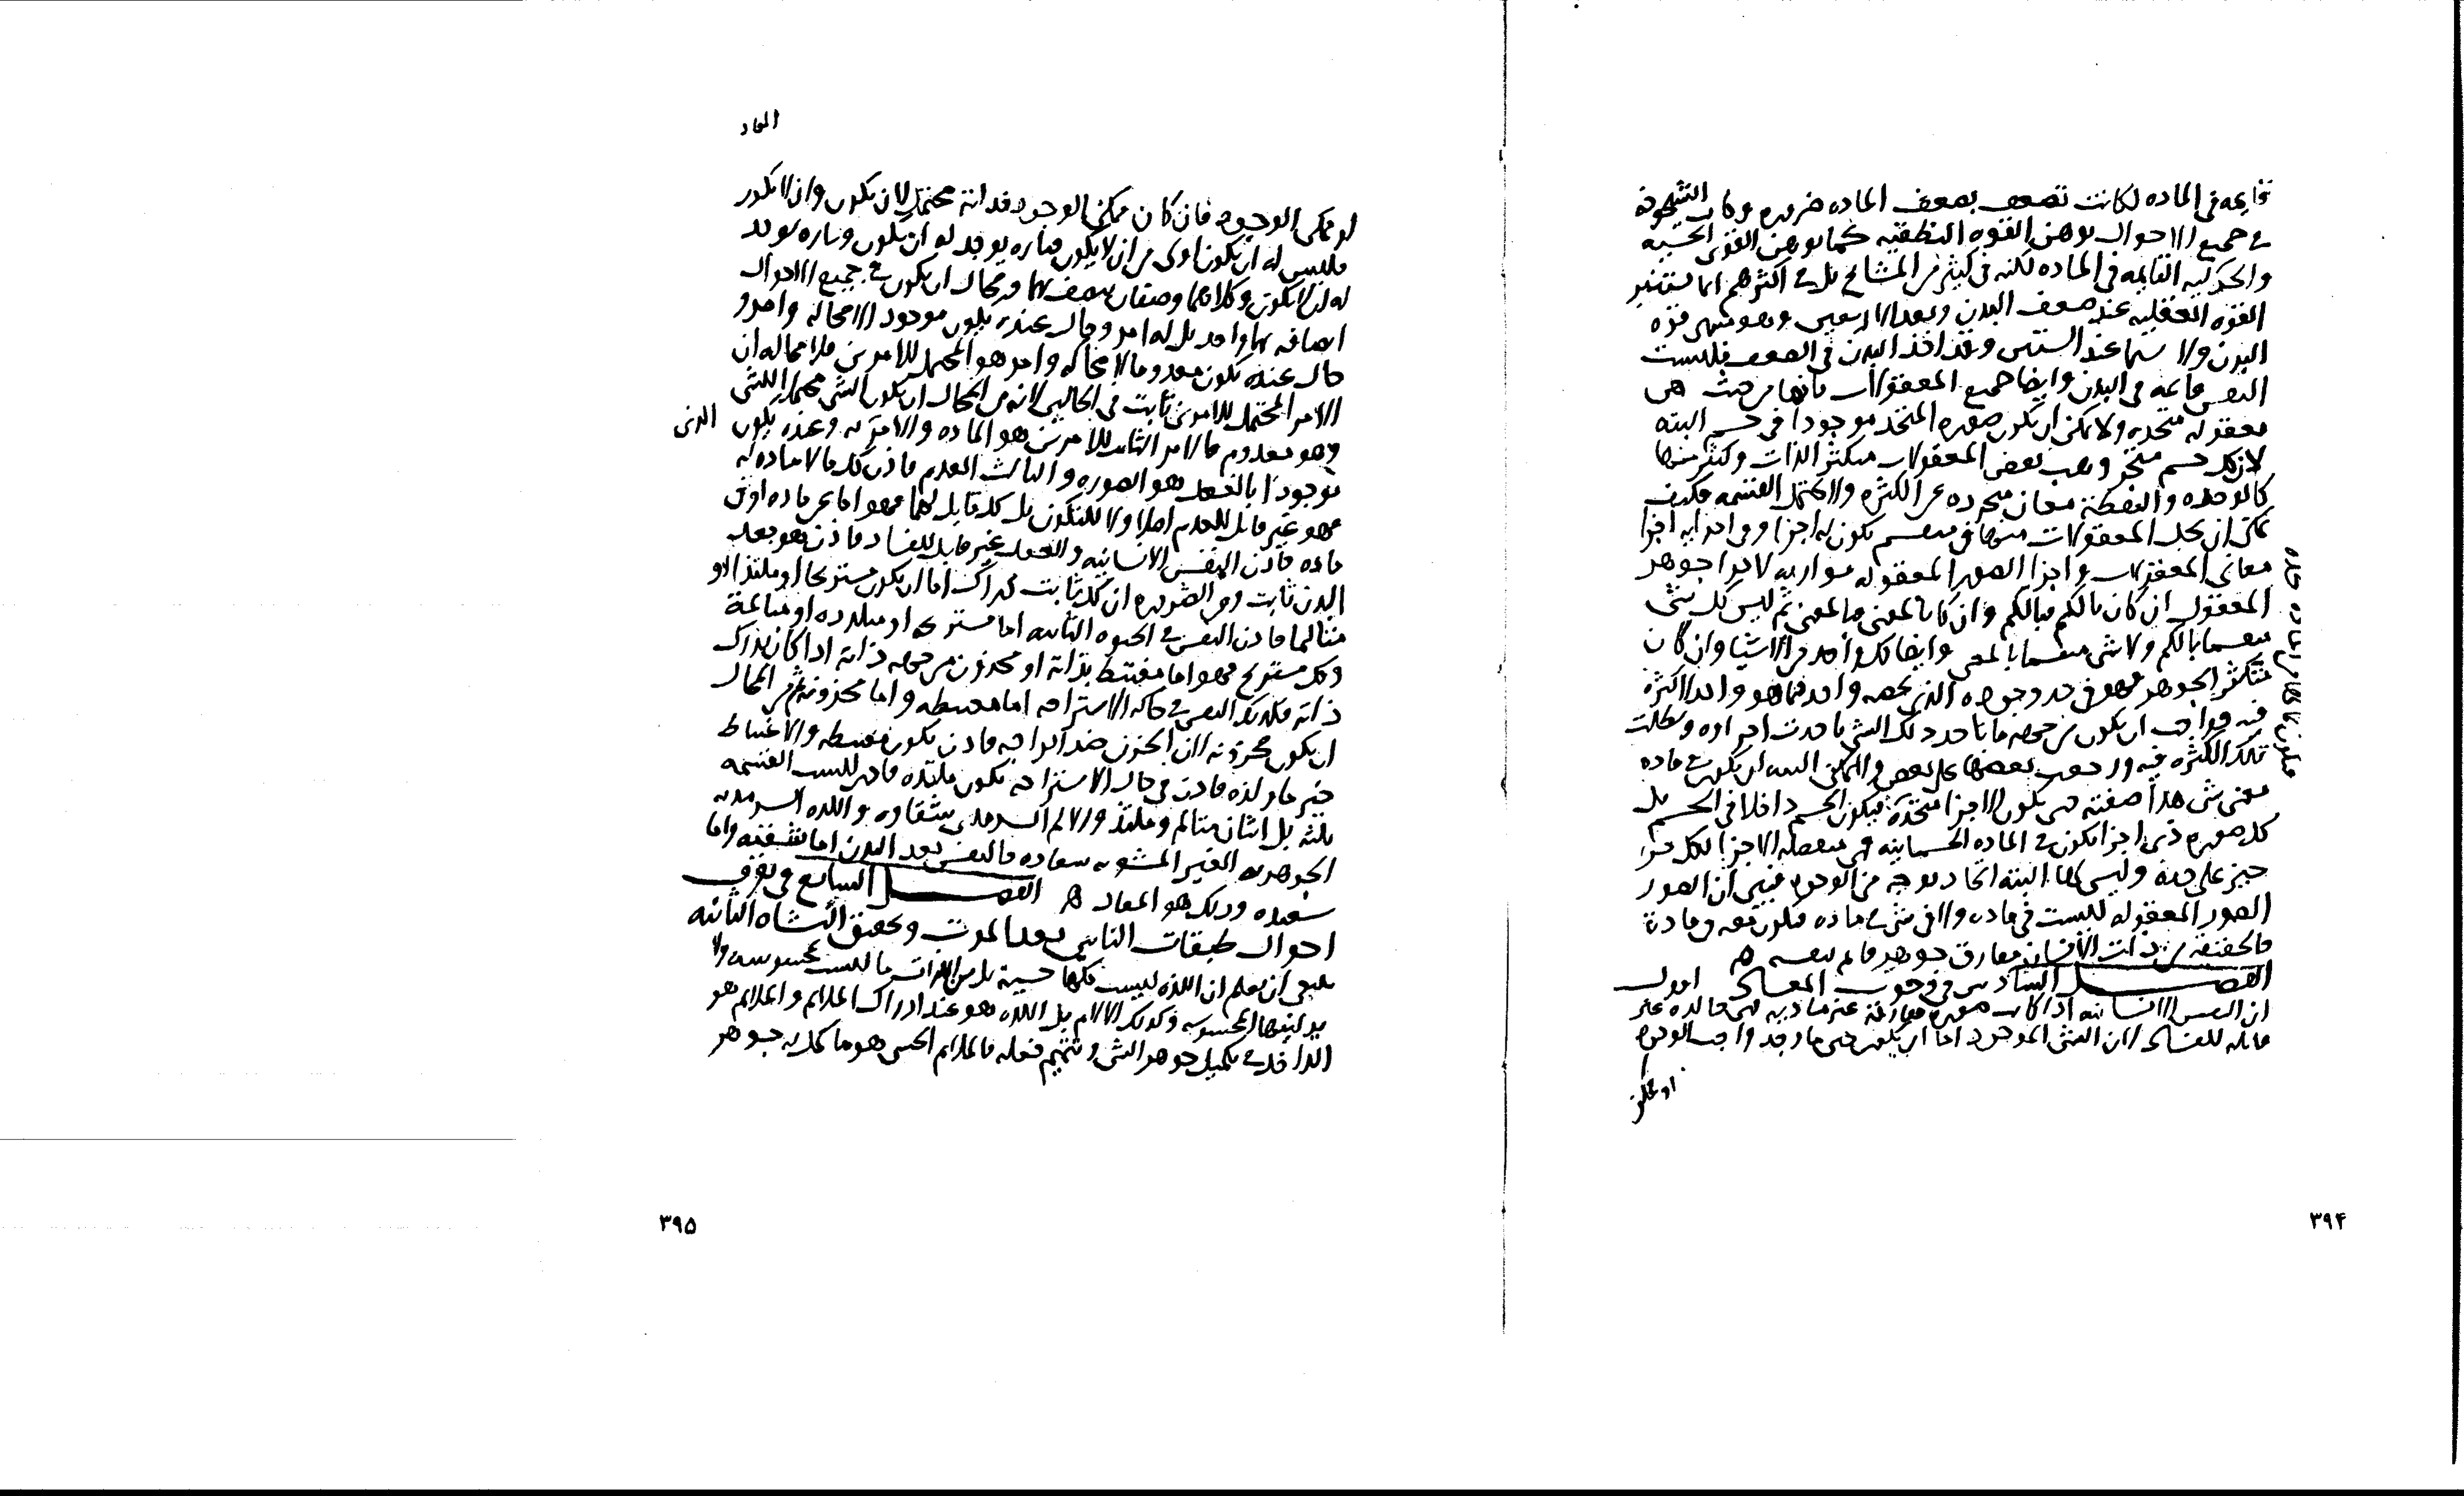 قايمه فى الماده لكانت تضعف بضعف الماده ضروره وكانت الشيخوخة
فى جميع الاحوال توهن القوه النطقيه كما توهن القوى الحسيه
والحركيه القايمه فى الماده لكنه فى كثير من المشايخ بل فى اكثرهم انما تستفيد
القوه العقليه عند ضعف البدن وبعد الاربعين وهو منتهى قوه
البدن ولا سيما عند الستين وقد اخذ البدن فى الضعف فليست
النفس قايمه فى البدن وايضا جميع المعقولات فانها من حيث هى
معقوله متحده ولا يمكن ان يكون صوره المتحد موجودا فى جسم البته
لان كل جسم متجز وهب بعض المعقولات متكثر الذات وكثير منها
كالوحده والنقطة معان مجرده عن الكثره ولا تحتمل القسمه فكيف
يمكن ان يحل المعقولات منها فى منقسم يكون له اجزا وفى اجزايه اجزا
معانى المعقولات واجزا الصور المعقوله موازيه لاجزا جوهر
المعقول ان كان بالكم فبالكم وان كان بالمعنى فبالمعنى ثم ليس كل شى
منقسما بالكم ولا شى منقسما بالمعنى وايضا لكل واحد من الاشيا وان كان
متكثر الجوهر فهو فى حد وجوده الذى يخصه واحد فما هو واحد لا كثره
فيه فواجب ان يكون من جهه ما
تلك الكثره فيه ورجعت بعضها على بعض ولا يمكن البته ان يكون فى ماده
معنى شى هذا صفته حتى يكون الاجزا متحدة فيكون الجسم داخلا فى الجسم بل
كل صوره ذى اجزا تكون فى الماده الجسمانيه فهى منفصله الاجزا لكل جزء
حيز على حده وليس لها البته اتحاد بوجه من الوجوه فتبين ان الصور
الصور المعقوله ليست فى ماده ولا فى شى فى ماده فتكون معه فى ماده
فالحقيقه من ذات الانسان مفارق جوهر قايم بنفسه ه
الفصل السادس فى وجوب المعاد اقول
ان النفس الانسانيه اذا كانت صوره مفارقة غير ماديه فهى خالده غير
قابله للفساد لان الشى الموجود اما ان يكون حين ما وجد واجب الوجود
او ممكن
٣٩۴
المعاد
او ممكن الوجود فان كان ممكن الوجود فذاته محتمل لان يكون وان لا يكون
فليس له ان يكون اولى من ان لا يكون فتاره يوجد له ان يكون وتاره يوجد
له ان لا يكون وكلاهما وصفان يتصف بهما ومحال ان يكون فى جميع الاحوال
اتصافه بهما واحد بل له امر وحال عنده يكون موجودا لا محاله وامر و
حال عنده يكون معدوما لا محاله وامر هو المحتمل للامرين فلا محاله ان
الامر المحتمل للامرين ثابت فى الحالين لانه من المحال ان يكون الشى محتملا للشى
وهو معدوم فالامر الثابت للامرين هو الماده والامر الذى به وعنده يكون
موجودا بالفعل هو الصوره والثالث العدم فاذن كل ما لا ماده له
فهو غير قابل للعدم اصلا ولا للتكون بل كل قابل لهما فهو اما عن ماده او فى
ماده فاذن النفس الانسانيه والعقل غير قابل للفساد فاذن هو بعد
البدن ثابت ومن الضروره ان كل ثابت دراك اما ان يكون مستريحا او ملتذا او
متالما فاذن النفس فى الحيوه الثانيه اما مستريحه او متلذذه او متالمة
وكل مستريح فهو اما مغتبط بذاته او محزون من جهه ذاته اذا كان يدرك
ذاته فكذلك النفس فى حاله الاستراحه اما مغتبطه واما محزونه ثم من المحال
ان يكون محزونه لان الحزن ضد الراحه فاذن يكون مغتبطه والاغتباط
خير ما ولذه فاذن فى حال الاستراحه تكون ملتذه فاذن ليست القسمه
ثلثه بل اثنان متالم وملتذ والالم السرمدى شقاوه واللذه السرمديه
الجوهريه الغير المشوبه سعاده فالنفس بعد البدن اما شقيه واما
سعيده وذلك هو المعاد ه الفصل السابع فى تعرف
احوال طبقات الناس بعد الموت وتحقيق النشاه الثانيه
ينبغى ان نعلم ان اللذه ليست كلها حسية بل من اللذات ما ليست بمحسوسه ولا
المحسوسه وكذلك الالام بل اللذه هو عند ادراك الملايم والملايم هو
الداخل فى تكميل جوهر الشى وتتميم فعله فالملايم الحسى هو ما كمل به جوهر
٣٩۵